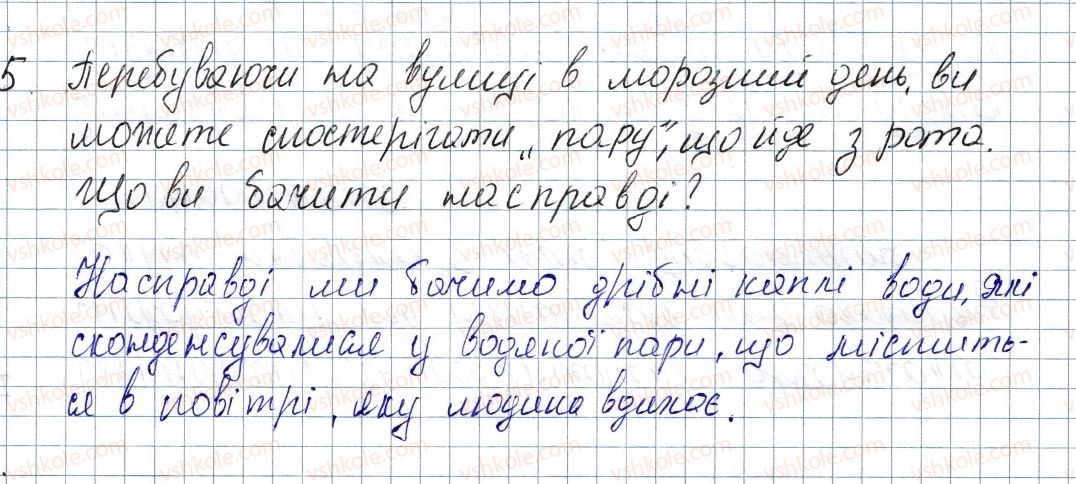 5. Перебуваючи на вулиці в морозний день, ви
можете спостерігати „пару", що йде з рота.
Що ви бачити насправді?
Насправді ми бачимо дрібні каплі води, які
сконденсувалися у водяної пари, що містить-
ся в повітрі, яку людина вдихає.